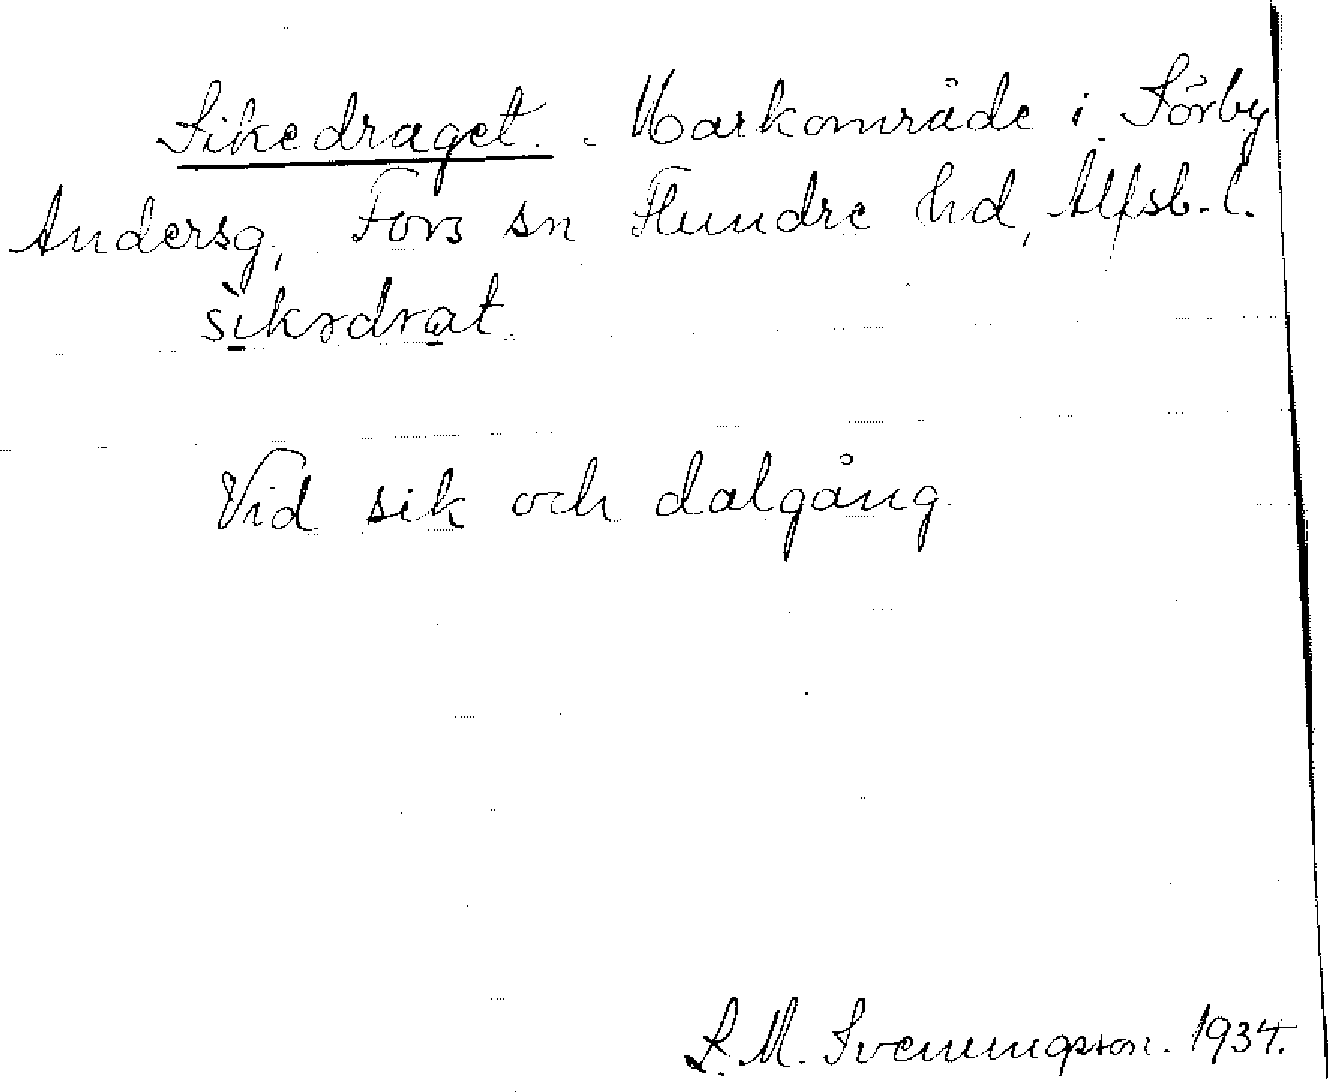 Sikedraget. - Markområde i Sörby
Andersg, Fors sn Flundre hd, Älfsb. l.
sìkərdrat.
Vid sik och dalgång
S. M. Svenungsson. 1934.